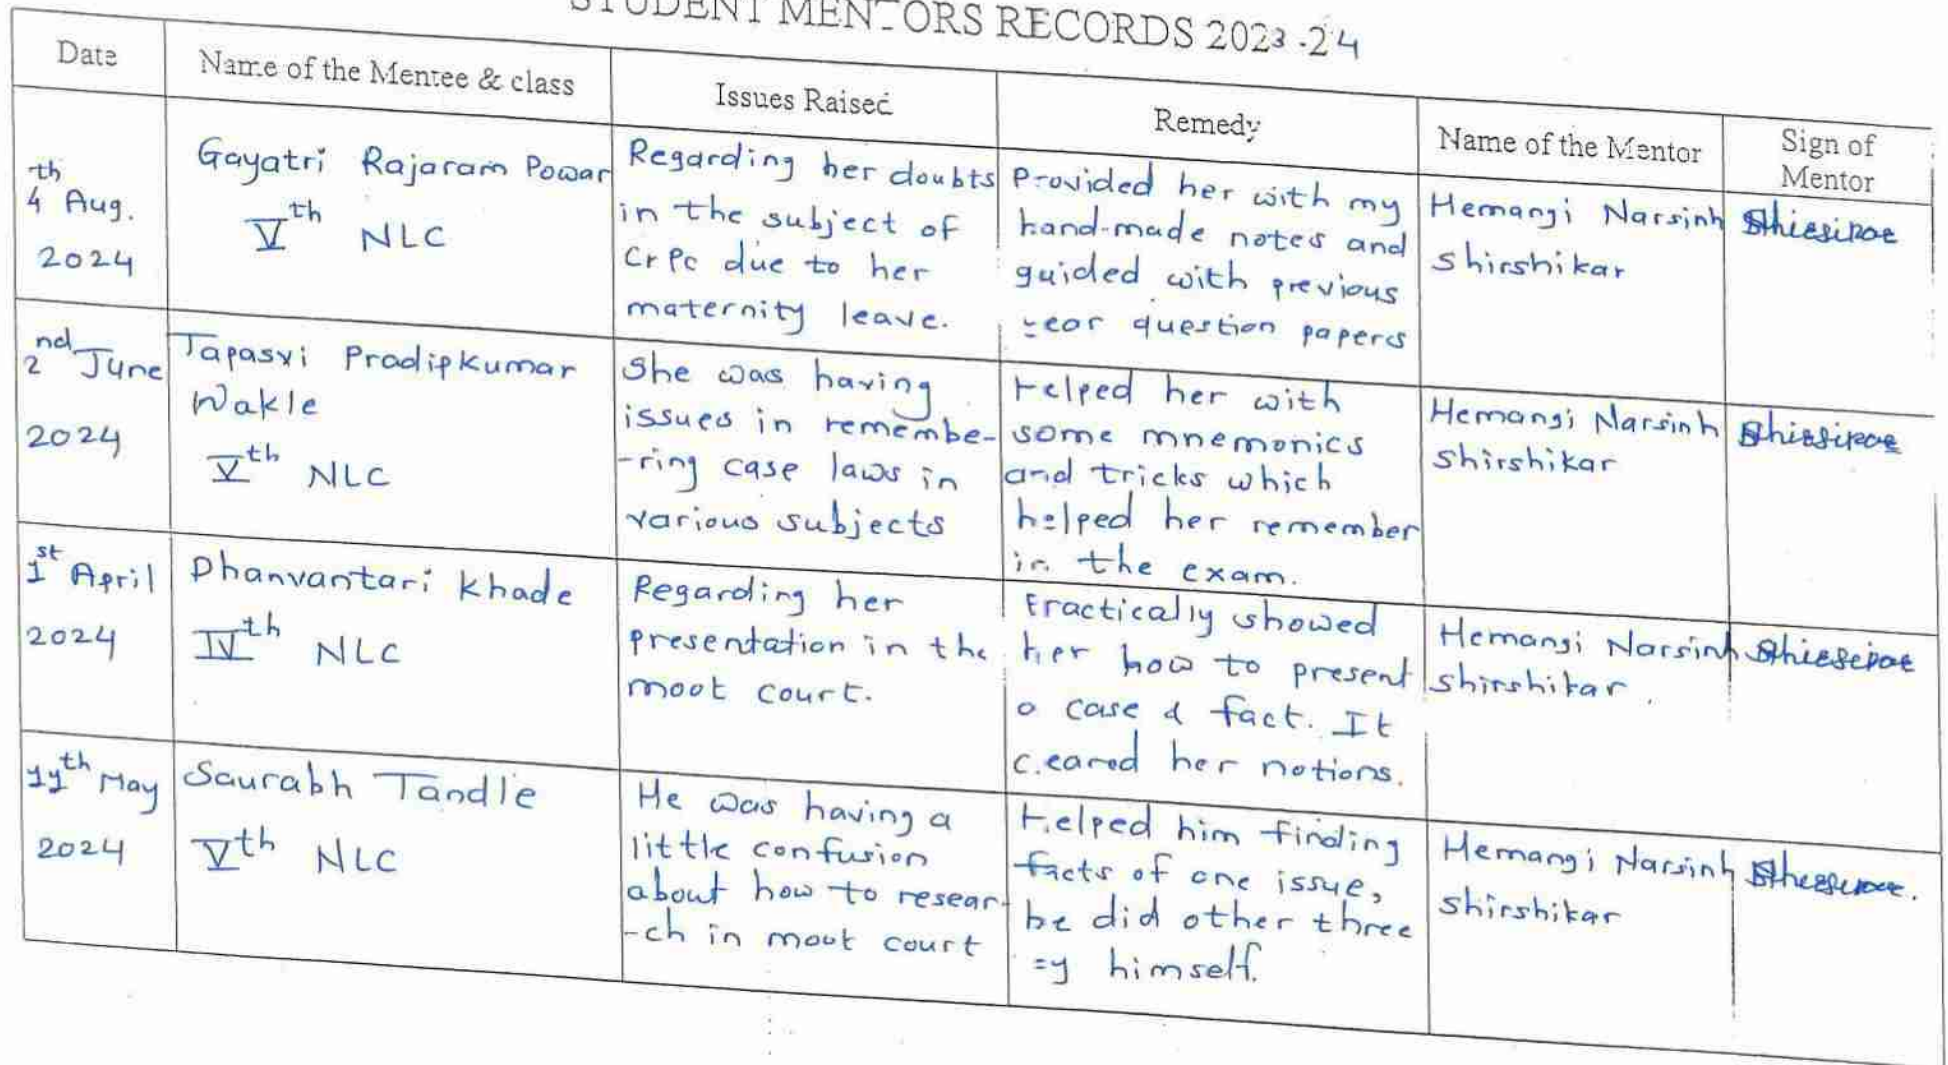 STUDENT MENTORS RECORDS 2023-24
Date
Name of the Mentee & class
Issues Raised
Remedy
Name of the Mentor
Sign of
Mentor
4th Aug.
2024
Gayatri Rajaram Powar
Vth NLC
Regarding her doubts
in the subject of
CrPc due to her
maternity leave.
Provided her with my
hand-made notes and
guided with previous
year question papers
Hemangi Narsinh
Shirshikar
2nd June
2024
Tapasvi Pradipkumar
Wakle
Vth NLC
She was having
issues in remembe-
-ring case laws in
various subjects
Helped her with
some mnemonics
and tricks which
helped her remember
in the exam.
Hemangi Narsinh
Shirshikar
1st April
2024
Dhanvantari Khade
IVth NLC
Regarding her
presentation in the
moot court.
Practically showed
her how to present
a case & fact. It
cleared her notions.
Hemangi Narsinh
Shirshikar.
11th May
2024
Saurabh Tandle
Vth NLC
He was having a
little confusion
about how to resear-
-ch in moot court
Helped him finding
facts of one issue,
he did other three
by himself.
Hemangi Narsinh
Shirshikar